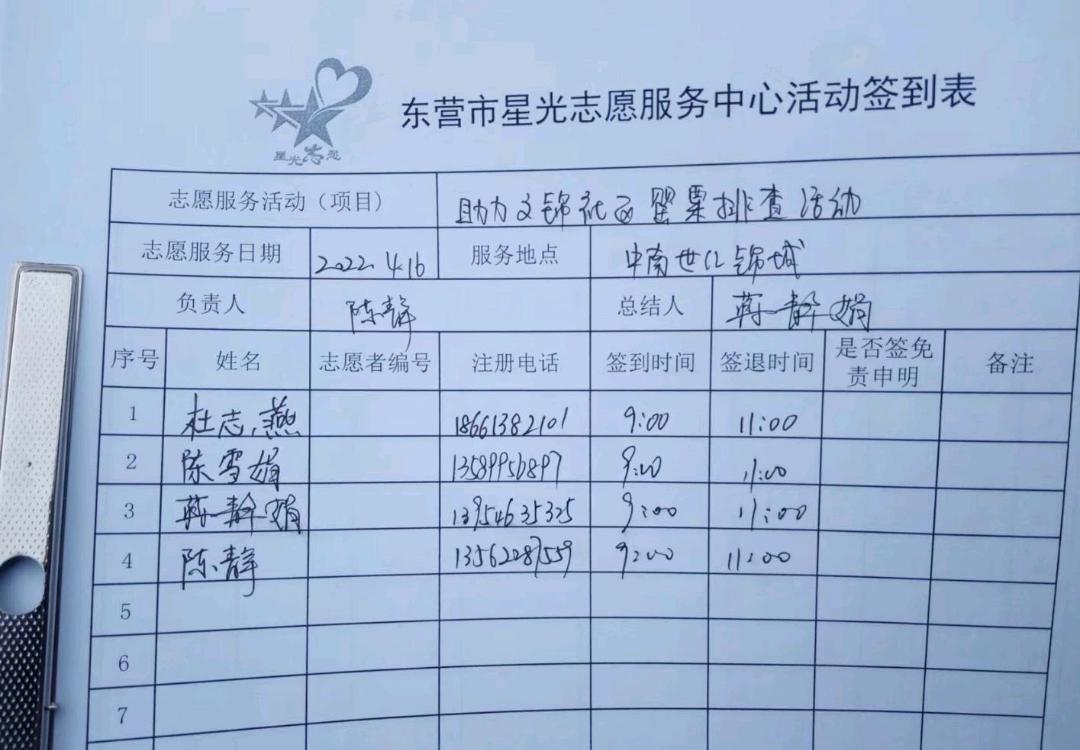 星光志愿
东营市星光志愿服务中心活动签到表
志愿服务活动（项目） 助力文锦社区罂粟排查活动
志愿服务日期 2022.4.16 服务地点 中南世纪锦城
负责人 陈静 总结人 蒋静娟
序号 姓名 志愿者编号 注册电话 签到时间 签退时间 是否签免责申明 备注
1 杜志燕 18661382101 9:00 11:00
2 陈雪娟 13589956897 9:00 11:00
3 蒋静娟 13954635325 9:00 11:00
4 陈静 13562287559 9:00 11:00
5
6
7